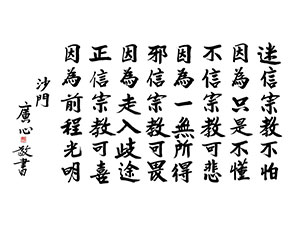 迷信宗教不怕
因為只是不懂
不信宗教可悲
因為一無所得
邪信宗教可畏
因為走入歧途
正信宗教可喜
因為前程光明
沙門
廣心敬書